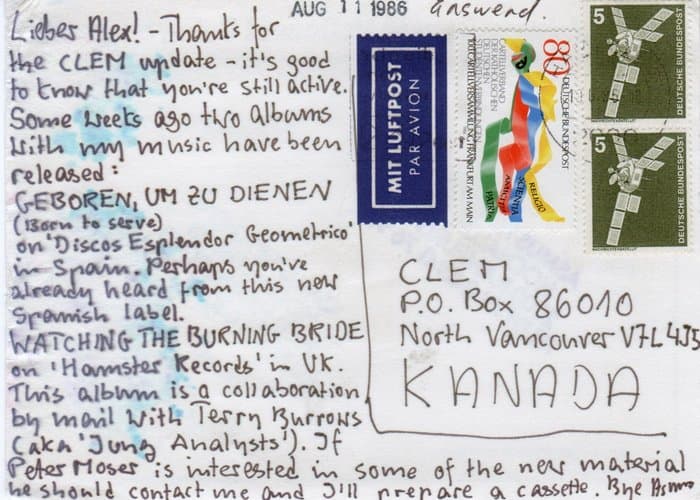 AUG 11 1986 answered.
Lieber Alex! - Thanks for
the CLEM update - it's good
to know that you're still active.
Some weeks ago two albums
with my music have been
released:
GEBOREN, UM ZU DIENEN
(Born to serve)
on 'Discos Esplendor Geometrico'
in Spain. Perhaps you've
already heard from this new
Spanish label.
WATCHING THE BURNING BRIDE
on 'Hamster Records' in UK.
This album is a collaboration
by mail with Terry Burrows
(aka 'Jung Analysts'). If
Peter Moser is interested in some of the new material
he should contact me and I'll prepare a cassette. Bye
MIT LUFTPOST
PAR AVION
80
DEUTSCHE BUNDESPOST
CARTELLVERBAND
DER KATHOLISCHEN
DEUTSCHEN
STUDENTENVERBINDUNGEN
100. CARTELLVERSAMMLUNG FRANKFURT AM MAIN
RELIGIO
SCIENTIA
AMICITIA
PATRIA
5
DEUTSCHE BUNDESPOST
5
DEUTSCHE BUNDESPOST
CLEM
P.O. Box 86010
North Vancouver V7L 4J5
KANADA